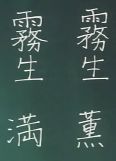 霧生 薫
霧生 満